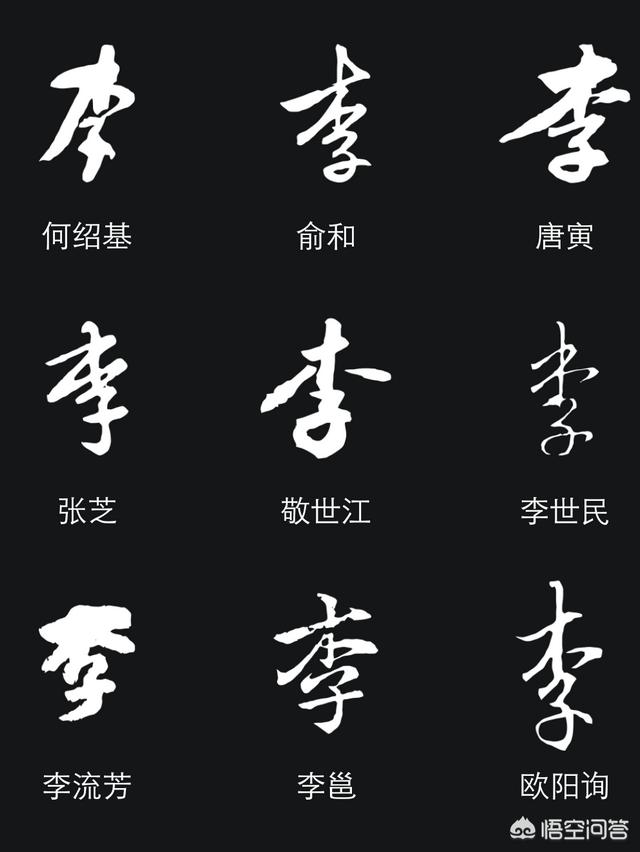 李 李 李
何绍基 俞和 唐寅
李 李 李
张芝 敬世江 李世民
李 李 李
李流芳 李邕 欧阳询
悟空问答